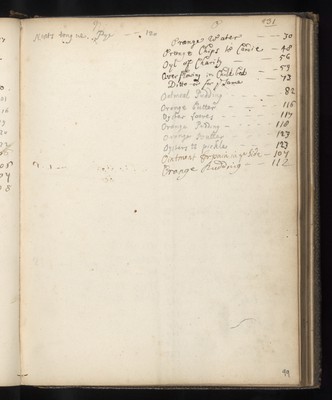 N
O
131
Neats tong
100
Orange Water — 30
Orange Chips to Candie — 48
Oyl of Charity — 56
Overflowing in Child bed — 59
Ditto for ye Same — 73
Oatmeal Pudding — 82
Orange Butter — 116
Oyster Loaves — 117
Orange Puding — 118
Orange Butter — 123
Oysters to pickle — 123
Ointment — 107
Orange Pudding — 112
99